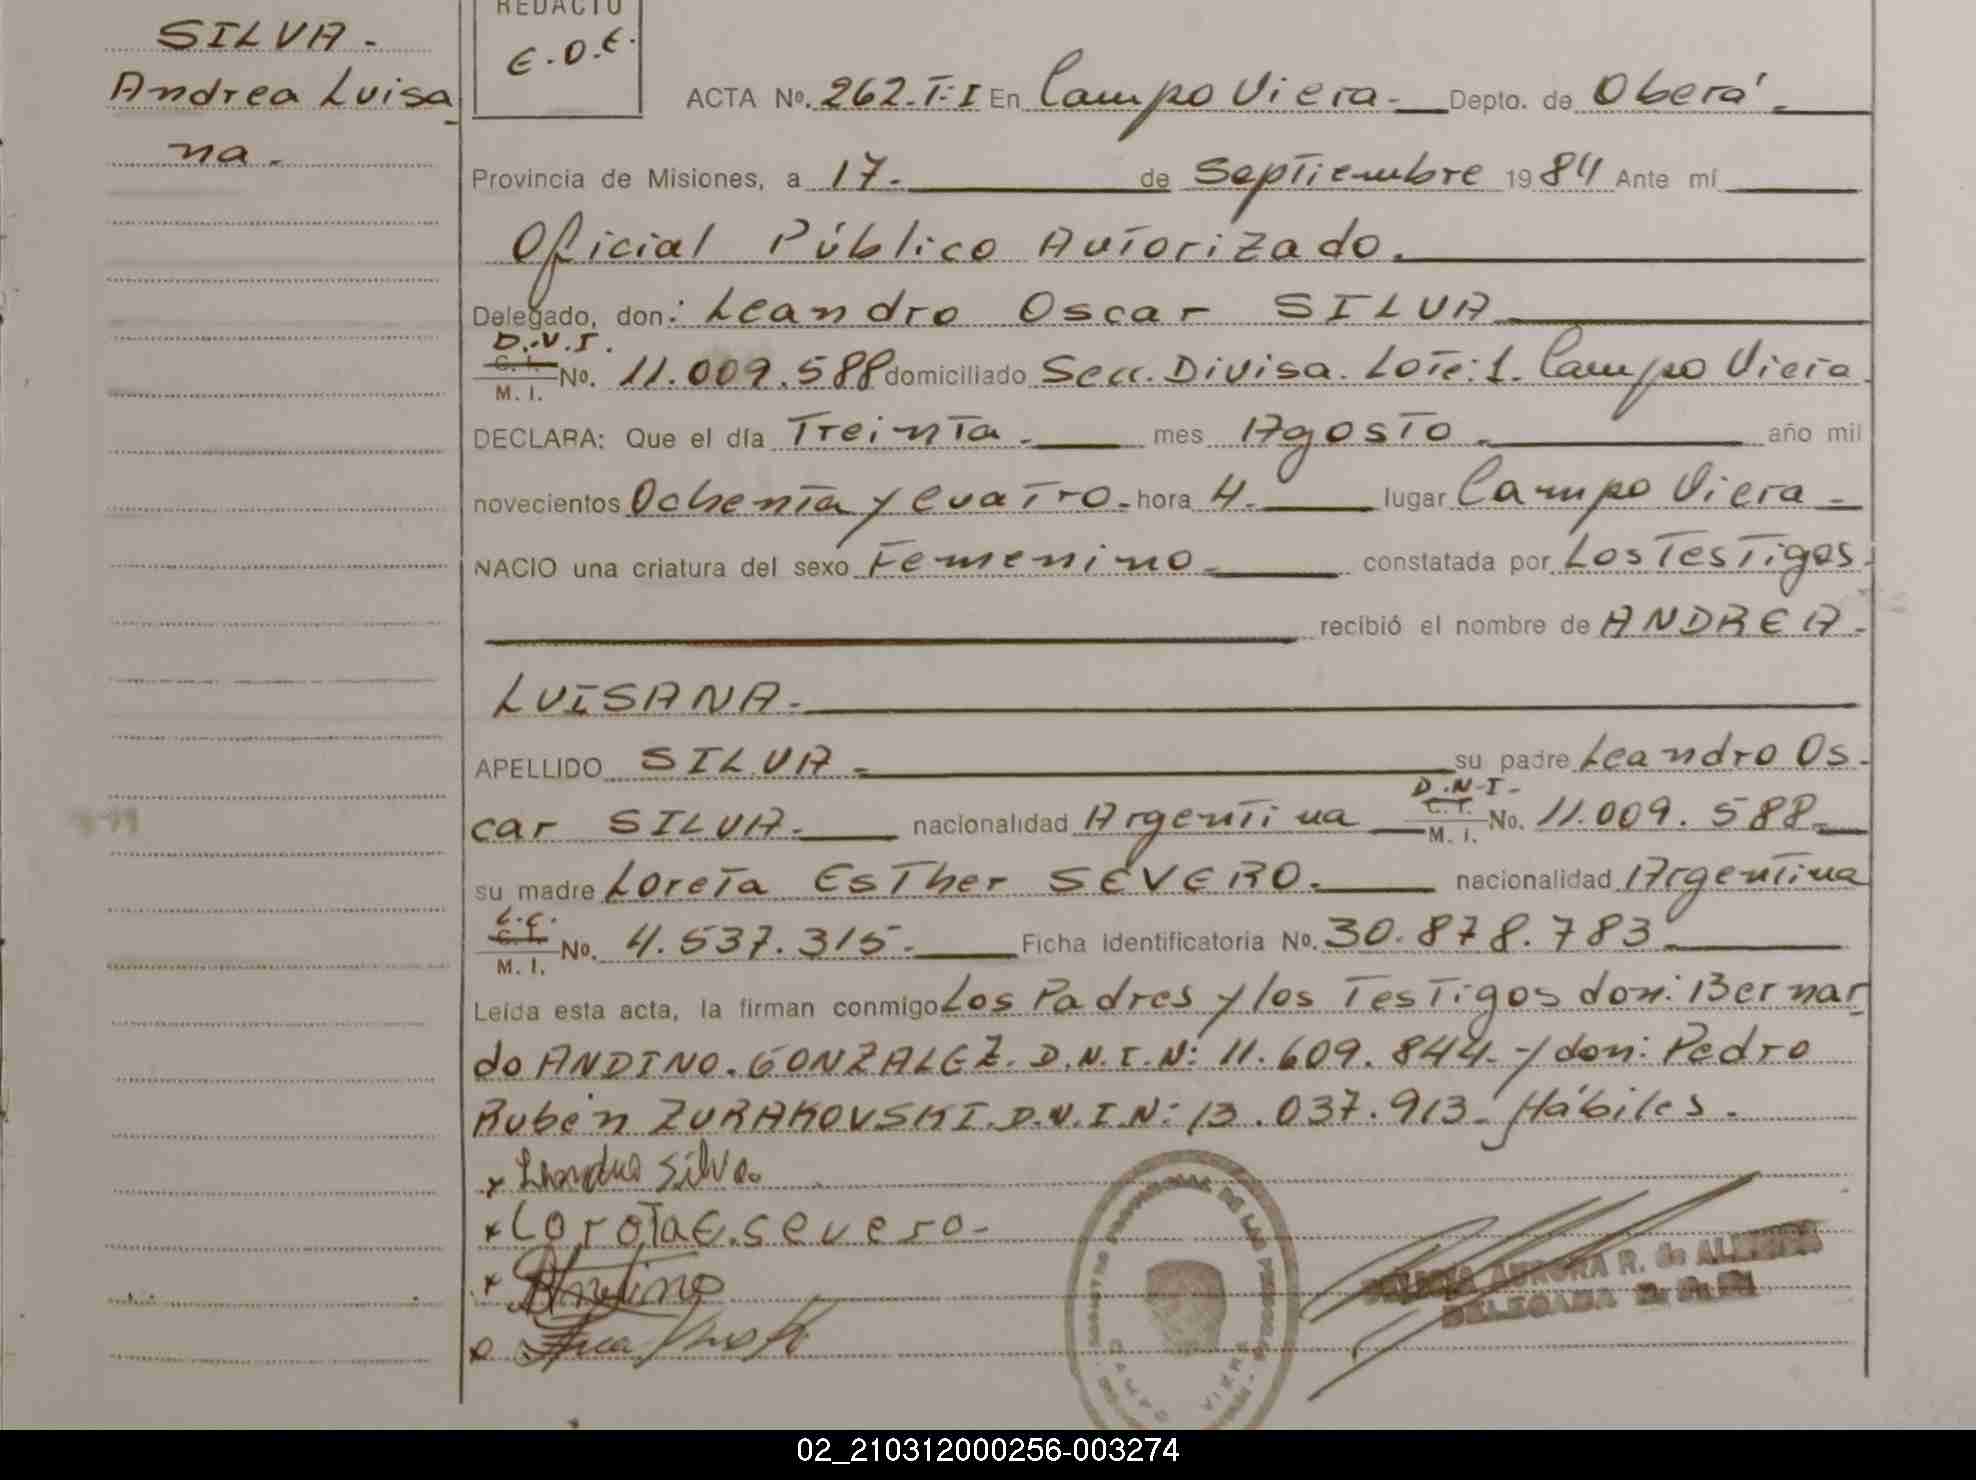 SILVA.
Andrea Luisa
na.
REDACTO
E.O.E.
ACTA No. 262.T:I En Campo Viera. Depto. de Oberá.
Provincia de Misiones, a 17. de Septiembre 1984 Ante mí
Oficial Público Autorizado.
Delegado, don: Leandro Oscar SILVA
D.N.I.
C. I.
M. I. No. 11.009.588 domiciliado Secc. Divisa. Lote: 1. Campo Viera.
DECLARA: Que el día Treinta. mes Agosto. año mil
novecientos Ochenta y cuatro. hora 4. lugar Campo Viera
NACIO una criatura del sexo Femenino. constatada por Los Testigos.
recibió el nombre de ANDREA.
LUISANA.
APELLIDO SILVA. su padre Leandro Os.
D.N.I.
C. I.
car SILVA. nacionalidad Argentina M. I. No. 11.009.588
su madre Loreta Esther SEVERO. nacionalidad Argentina
L.C.
C. I.
M. I. No. 4.537.315. Ficha identificatoria No. 30.878.783
Leída esta acta, la firman conmigo Los Padres y los Testigos don: Bernar
do ANDINO. GONZALEZ. D.N.I.N: 11.609.844. y don: Pedro
Rubén ZURAKOVSKI. D.N.I.N: 13.037.913. Hábiles.
x Leandro Silva.
x Lorota E. severo-
x Andino
CAMPO VIERA
AURORA R. de
DELEGADA
02_210312000256-003274